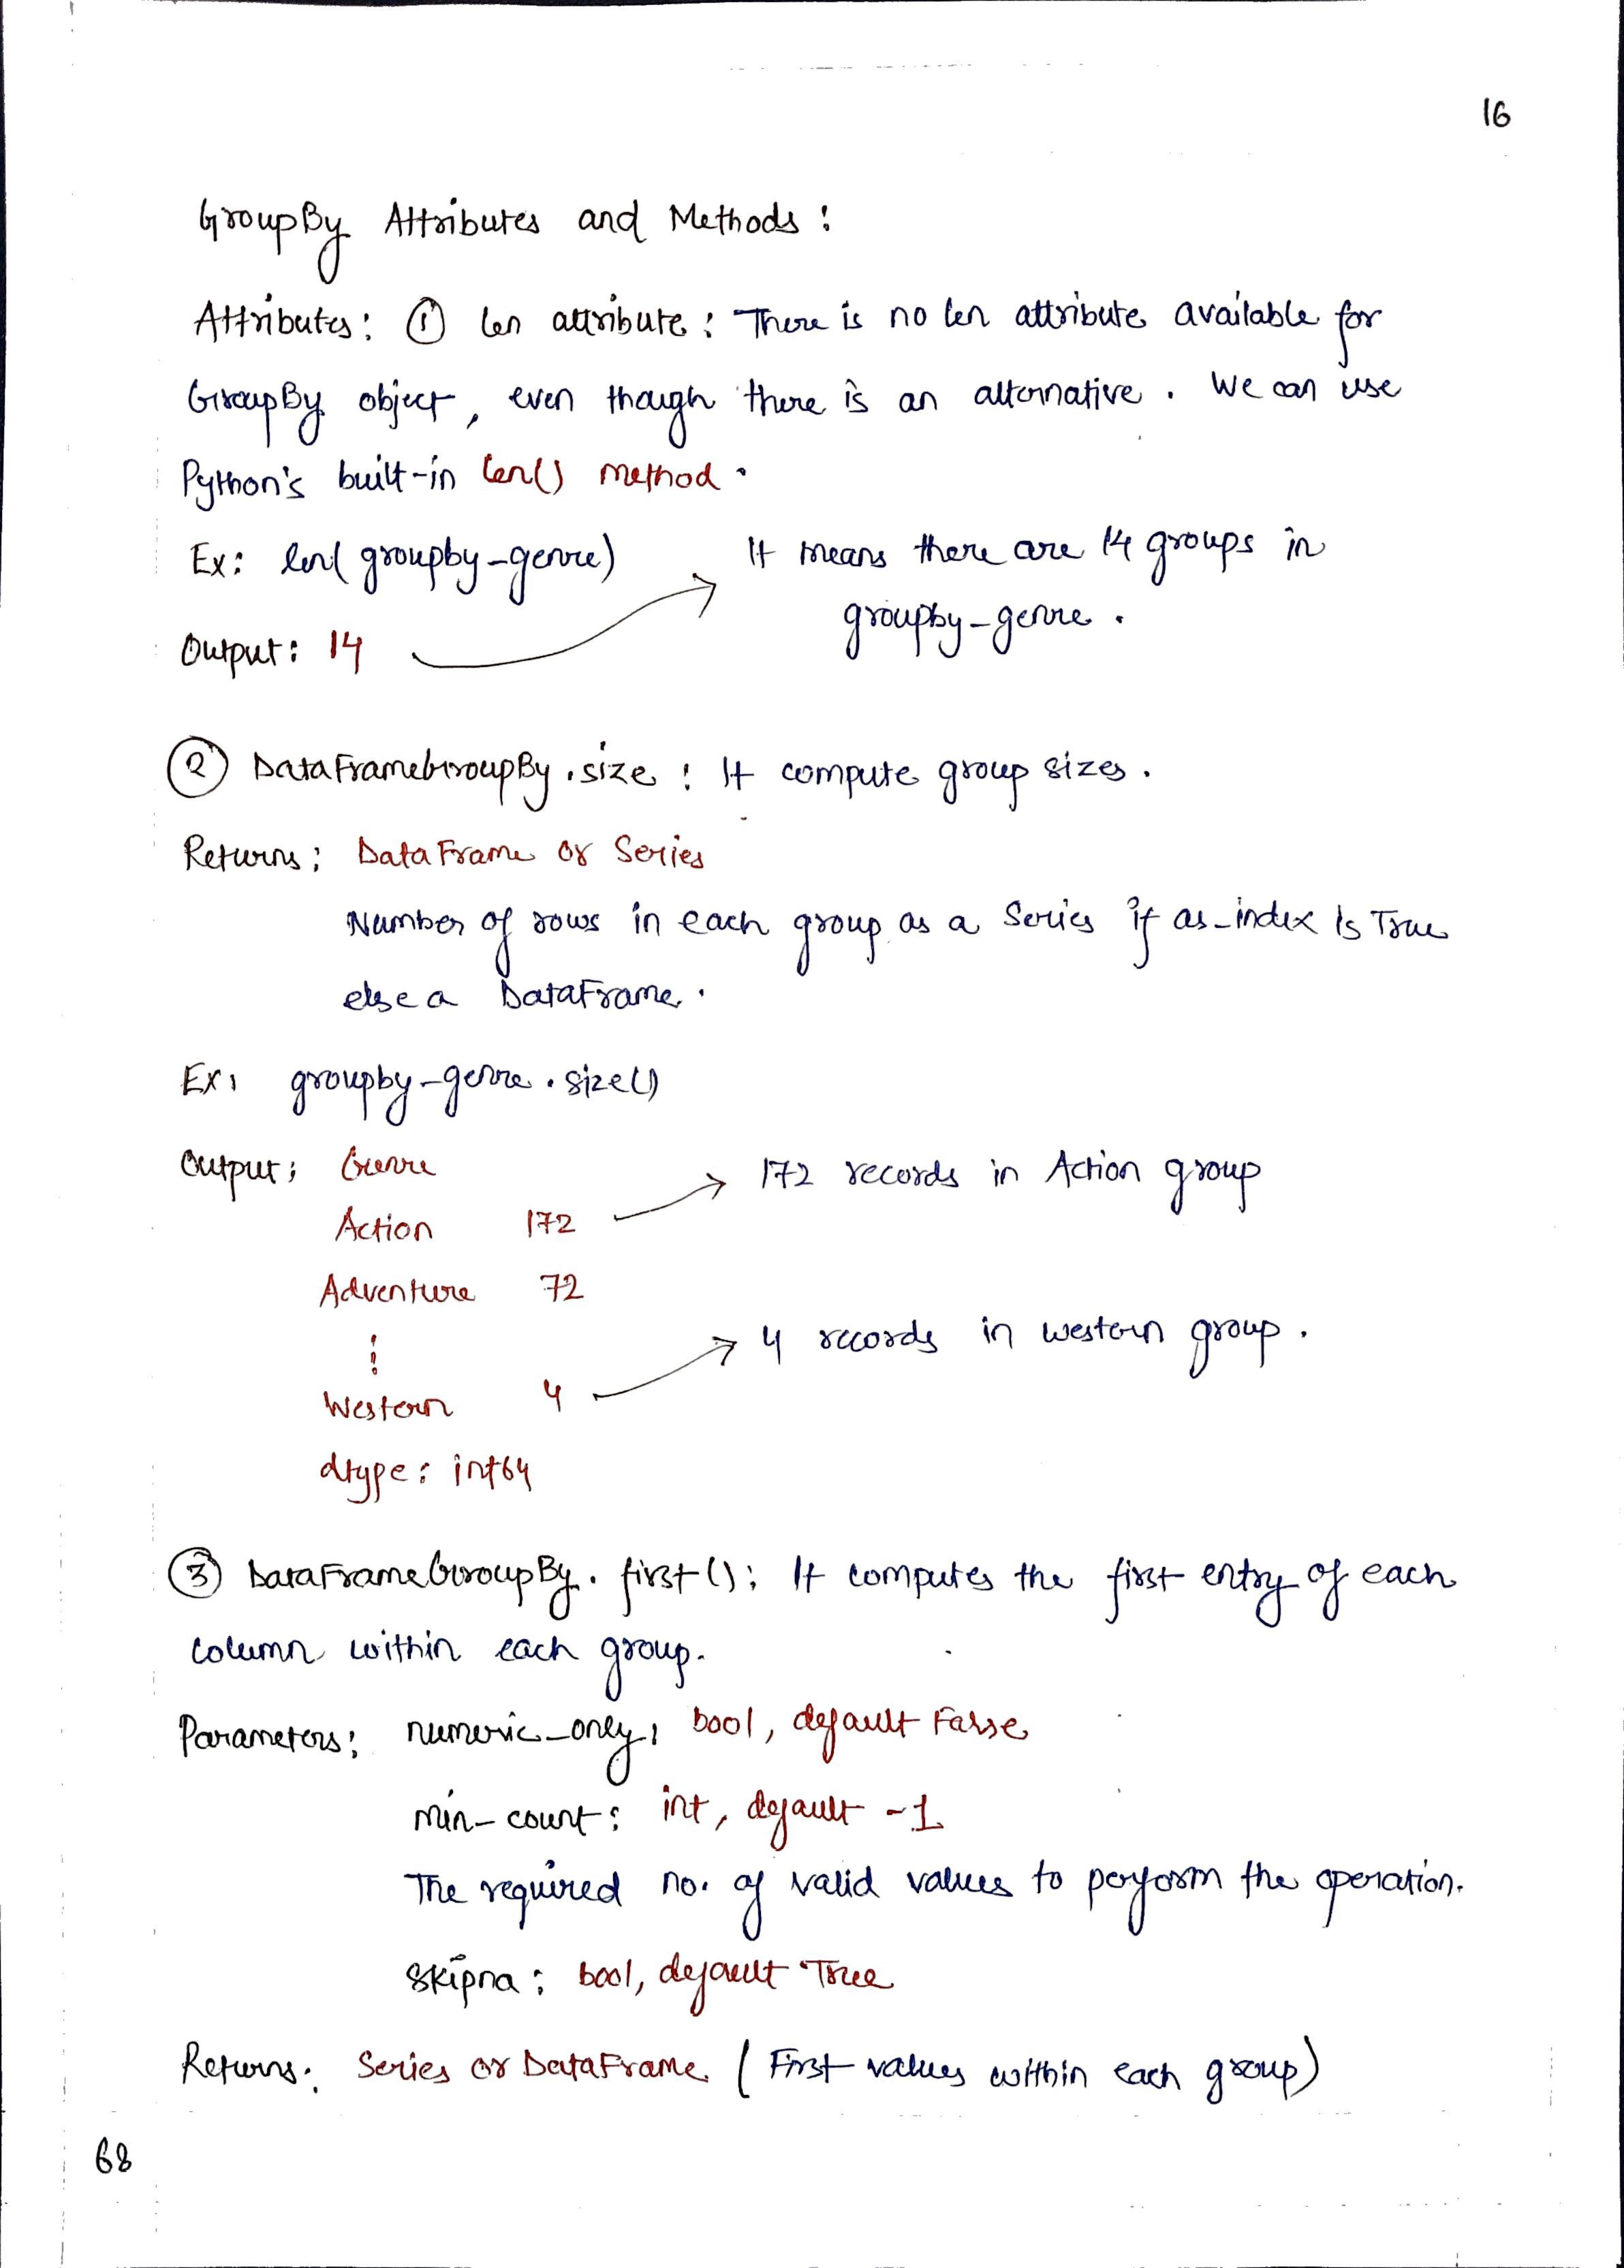 16
GroupBy Attributes and Methods :
Attributes: ① len attribute : There is no len attribute available for
GroupBy object, even though there is an alternative. We can use
Python's built-in len() method.
Ex: len(groupby_genre) It means there are 14 groups in
groupby_genre.
Output: 14
② DataFrameGroupBy.size : It compute group sizes.
Returns: DataFrame or Series
Number of rows in each group as a Series if as_index is True
else a DataFrame.
Ex: groupby_genre.size()
Output: Genre
172 records in Action group
Action 172
Adventure 72
4 records in western group.
Western 4
dtype: int64
③ DataFrameGroupBy.first(): It computes the first entry of each
column within each group.
Parameters: numeric_only: bool, default False
min_count: int, default -1
The required no. of valid values to perform the operation.
skipna: bool, default True
Returns: Series or DataFrame (First values within each group)
68